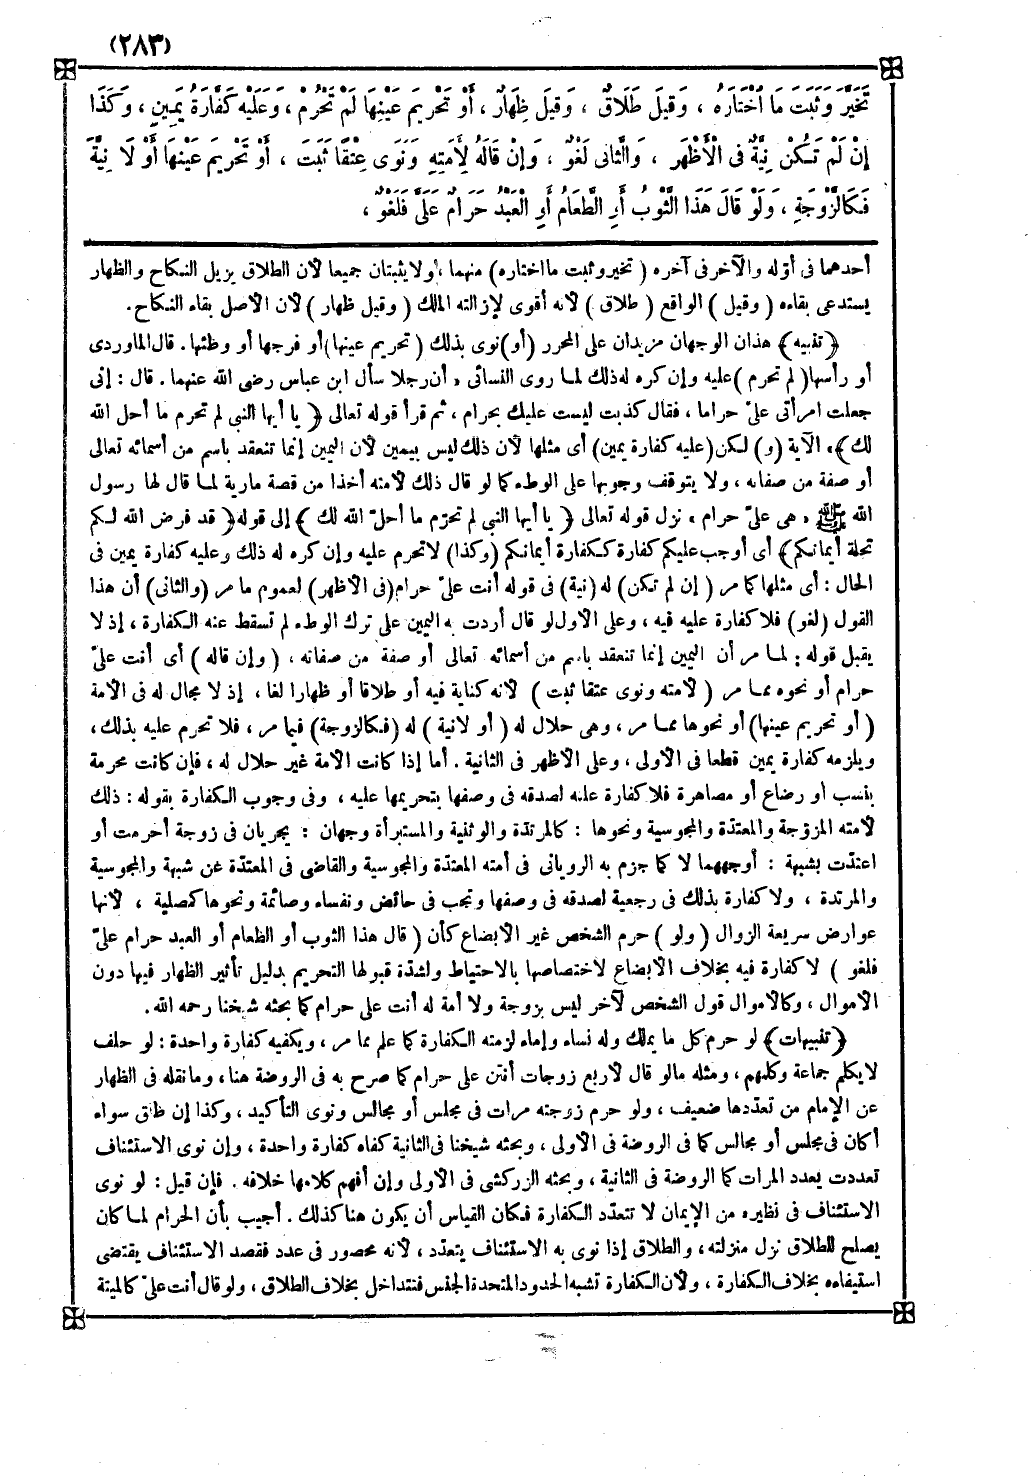 (٢٨٣)
تَخَيَّرَ وَثَبَتَ مَا اخْتَارَهُ ، وَقِيلَ طَلَاقٌ ، وَقِيلَ ظِهَارٌ ، أَوْ تَحْرِيمَ عَيْنِهَا لَمْ تَحْرُمْ ، وَعَلَيْهِ كَفَّارَةُ يَمِينٍ ، وَكَذَا
إِنْ لَمْ تَكُنْ نِيَّةٌ فِى الْأَظْهَرِ ، وَالثَّانِى لَغْوٌ ، وَإِنْ قَالَهُ لِأَمَتِهِ وَنَوَى عِتْقًا ثَبَتَ ، أَوْ تَحْرِيمَ عَيْنِهَا أَوْ لَا نِيَّةَ
فَكَالزَّوْجَةِ ، وَلَوْ قَالَ هَذَا الثَّوْبُ أَوِ الطَّعَامُ أَوِ الْعَبْدُ حَرَامٌ عَلَىَّ فَلَغْوٌ ،
أحدهما فى أوّله والآخر فى آخره (تخير وثبت ما اختاره) منهما ، ولا يثبتان جميعا لأن الطلاق يزيل النكاح والظهار
يستدعى بقاءه (وقيل) الواقع (طلاق) لأنه أقوى لإزالته الملك (وقيل ظهار) لأن الأصل بقاء النكاح.
﴿تنبيه﴾ هذان الوجهان مزيدان على المحرر (أو) نوى بذلك (تحريم عينها) أو فرجها أو وطئها . قال الماوردى
أو رأسها (لم تحرم) عليه وإن كره له ذلك لما روى النسائى « أن رجلا سأل ابن عباس رضى الله عنهما . قال : إنى
جعلت امرأتى علىّ حراما ، فقال كذبت ليست عليك بحرام ، ثم قرأ قوله تعالى ﴿ يا أيها النبى لم تحرم ما أحل الله
لك ﴾ » الآية (و) لكن (عليه كفارة يمين) أى مثلها لأن ذلك ليس بيمين لأن اليمين إنما تنعقد باسم من أسمائه تعالى
أو صفة من صفاته ، ولا يتوقف وجوبها على الوطء كما لو قال ذلك لأمته أخذا من قصة مارية لما قال لها رسول
الله ﷺ « هى علىّ حرام » نزل قوله تعالى ﴿ يا أيها النبى لم تحرّم ما أحلّ الله لك ﴾ إلى قوله ﴿ قد فرض الله لكم
تحلة أيمانكم ﴾ أى أوجب عليكم كفارة ككفارة أيمانكم (وكذا) لا تحرم عليه وإن كره له ذلك وعليه كفارة يمين فى
الحال : أى مثلها كما مر (إن لم تكن) له (نية) فى قوله أنت علىّ حرام (فى الأظهر) لعموم ما مر (والثانى) أن هذا
القول (لغو) فلا كفارة عليه فيه ، وعلى الأول لو قال أردت به اليمين على ترك الوطء لم تسقط عنه الكفارة ، إذ لا
يقبل قوله : لما مر أن اليمين إنما تنعقد باسم من أسمائه تعالى أو صفة من صفاته ، (وإن قاله) أى أنت علىّ
حرام أو نحوه مما مر (لأمته ونوى عتقا ثبت) لأنه كناية فيه أو طلاقا أو ظهارا لغا ، إذ لا مجال له فى الأمة
(أو تحريم عينها) أو نحوها مما مر ، وهى حلال له (أو لانية) له (فكالزوجة) فيما مر ، فلا تحرم عليه بذلك ،
ويلزمه كفارة يمين قطعا فى الأولى ، وعلى الأظهر فى الثانية . أما إذا كانت الأمة غير حلال له ، فإن كانت محرمة
بنسب أو رضاع أو مصاهرة فلا كفارة عليه لصدقه فى وصفها بتحريمها عليه ، وفى وجوب الكفارة بقوله : ذلك
لأمته المزوّجة والمعتدّة والمجوسية ونحوها : كالمرتدّة والوثنية والمستبرأة وجهان : يجريان فى زوجة أحرمت أو
اعتدّت بشبهة : أوجههما لا كما جزم به الرويانى فى أمته المعتدّة والمجوسية والقاضى فى المعتدّة عن شبهة والمجوسية
والمرتدة ، ولا كفارة بذلك فى رجعية لصدقه فى وصفها وتجب فى حائض ونفساء وصائمة ونحوها كمصلية ، لأنها
عوارض سريعة الزوال (ولو) حرم الشخص غير الأبضاع كأن (قال هذا الثوب أو الطعام أو العبد حرام علىّ
فلغو) لا كفارة فيه بخلاف الأبضاع لاختصاصها بالاحتياط ولشدّة قبولها التحريم بدليل تأثير الظهار فيها دون
الأموال ، وكالأموال قول الشخص لآخر ليس بزوجة ولا أمة له أنت على حرام كما بحثه شيخنا رحمه الله .
﴿تنبيهات﴾ لو حرم كل ما يملك وله نساء وإماء لزمته الكفارة كما علم مما مر ، ويكفيه كفارة واحدة : لو حلف
لا يكلم جماعة وكلمهم ، ومثله مالو قال لأربع زوجات أنتن على حرام كما صرح به فى الروضة هنا ، وما نقله فى الظهار
عن الإمام من تعدّدها ضعيف ، ولو حرم زوجته مرات فى مجلس أو مجالس ونوى التأكيد ، وكذا إن طلق سواء
أكان فى مجلس أو مجالس كما فى الروضة فى الأولى ، وبحثه شيخنا فى الثانية كفاه كفارة واحدة ، وإن نوى الاستئناف
تعددت بعدد المرات كما الروضة فى الثانية ، وبحثه الزركشى فى الأولى وإن أفهم كلامها خلافه . فإن قيل : لو نوى
الاستئناف فى نظيره من الإيمان لا تتعدّد الكفارة فكان القياس أن يكون هنا كذلك . أجيب بأن الحرام لما كان
يصلح للطلاق نزل منزلته ، والطلاق إذا نوى به الاستئناف يتعدد ، لأنه محصور فى عدد فقصد الاستئناف يقتضى
استيفاءه بخلاف الكفارة ، ولأن الكفارة تشبه الحدود المتحدة الجنس فتتداخل بخلاف الطلاق ، ولو قال أنت علىّ كالميتة